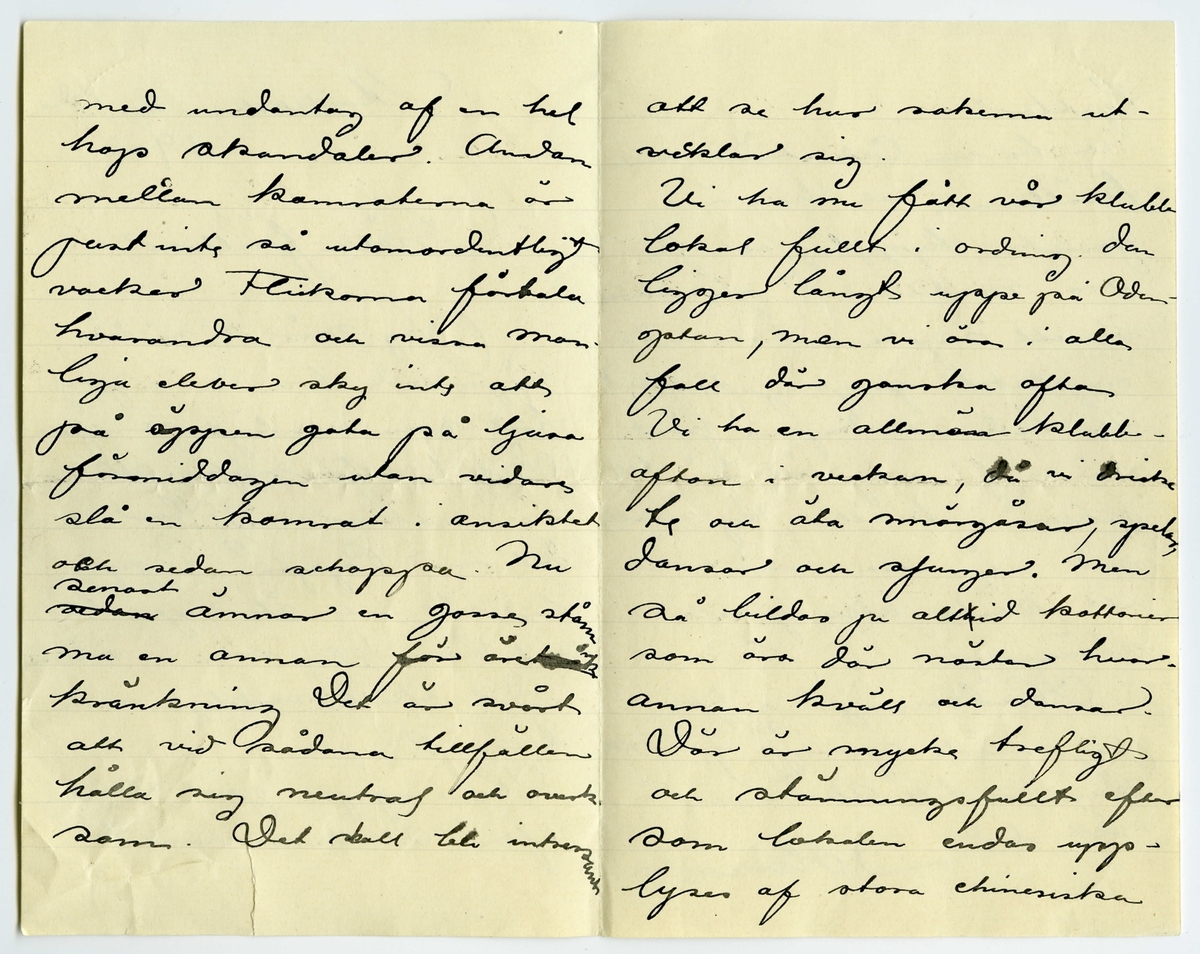 med undantag af en hel
hop skandaler. Andan
mellan kamraterna är
just inte så utomordentligt
vacker Flickorna förtala
hvarandra och vissa man-
liga elever sky inte att
på öppen gata på ljusa
förmiddagen utan vidare
slå en kamrat i ansiktet
och sedan schappa. Nu
senast
sedan ämnar en gosse stäm
ma en annan för äre
kränkning Det är svårt
att vid sådana tillfällen
hålla sig neutral och overk
sam. Det skall bli intressant
att se hur sakerna ut-
veckla sig.
Vi ha nu fått vår klubb
lokal fullt i ordning. den
ligger långt uppe på Oden-
gatan, men vi äro i alla
fall där ganska ofta
Vi ha en allmän klubb-
afton i veckan, då vi dricka
te och äta smörgåsar, spelar,
dansar och sjunger. Men
så bildas ju alltid kotterier
som äro där nästan hvar-
annan kväll och dansar.
Där är mycke trefligt
och stämningsfullt efter
som lokalen endas upp-
lyses af stora chinesiska